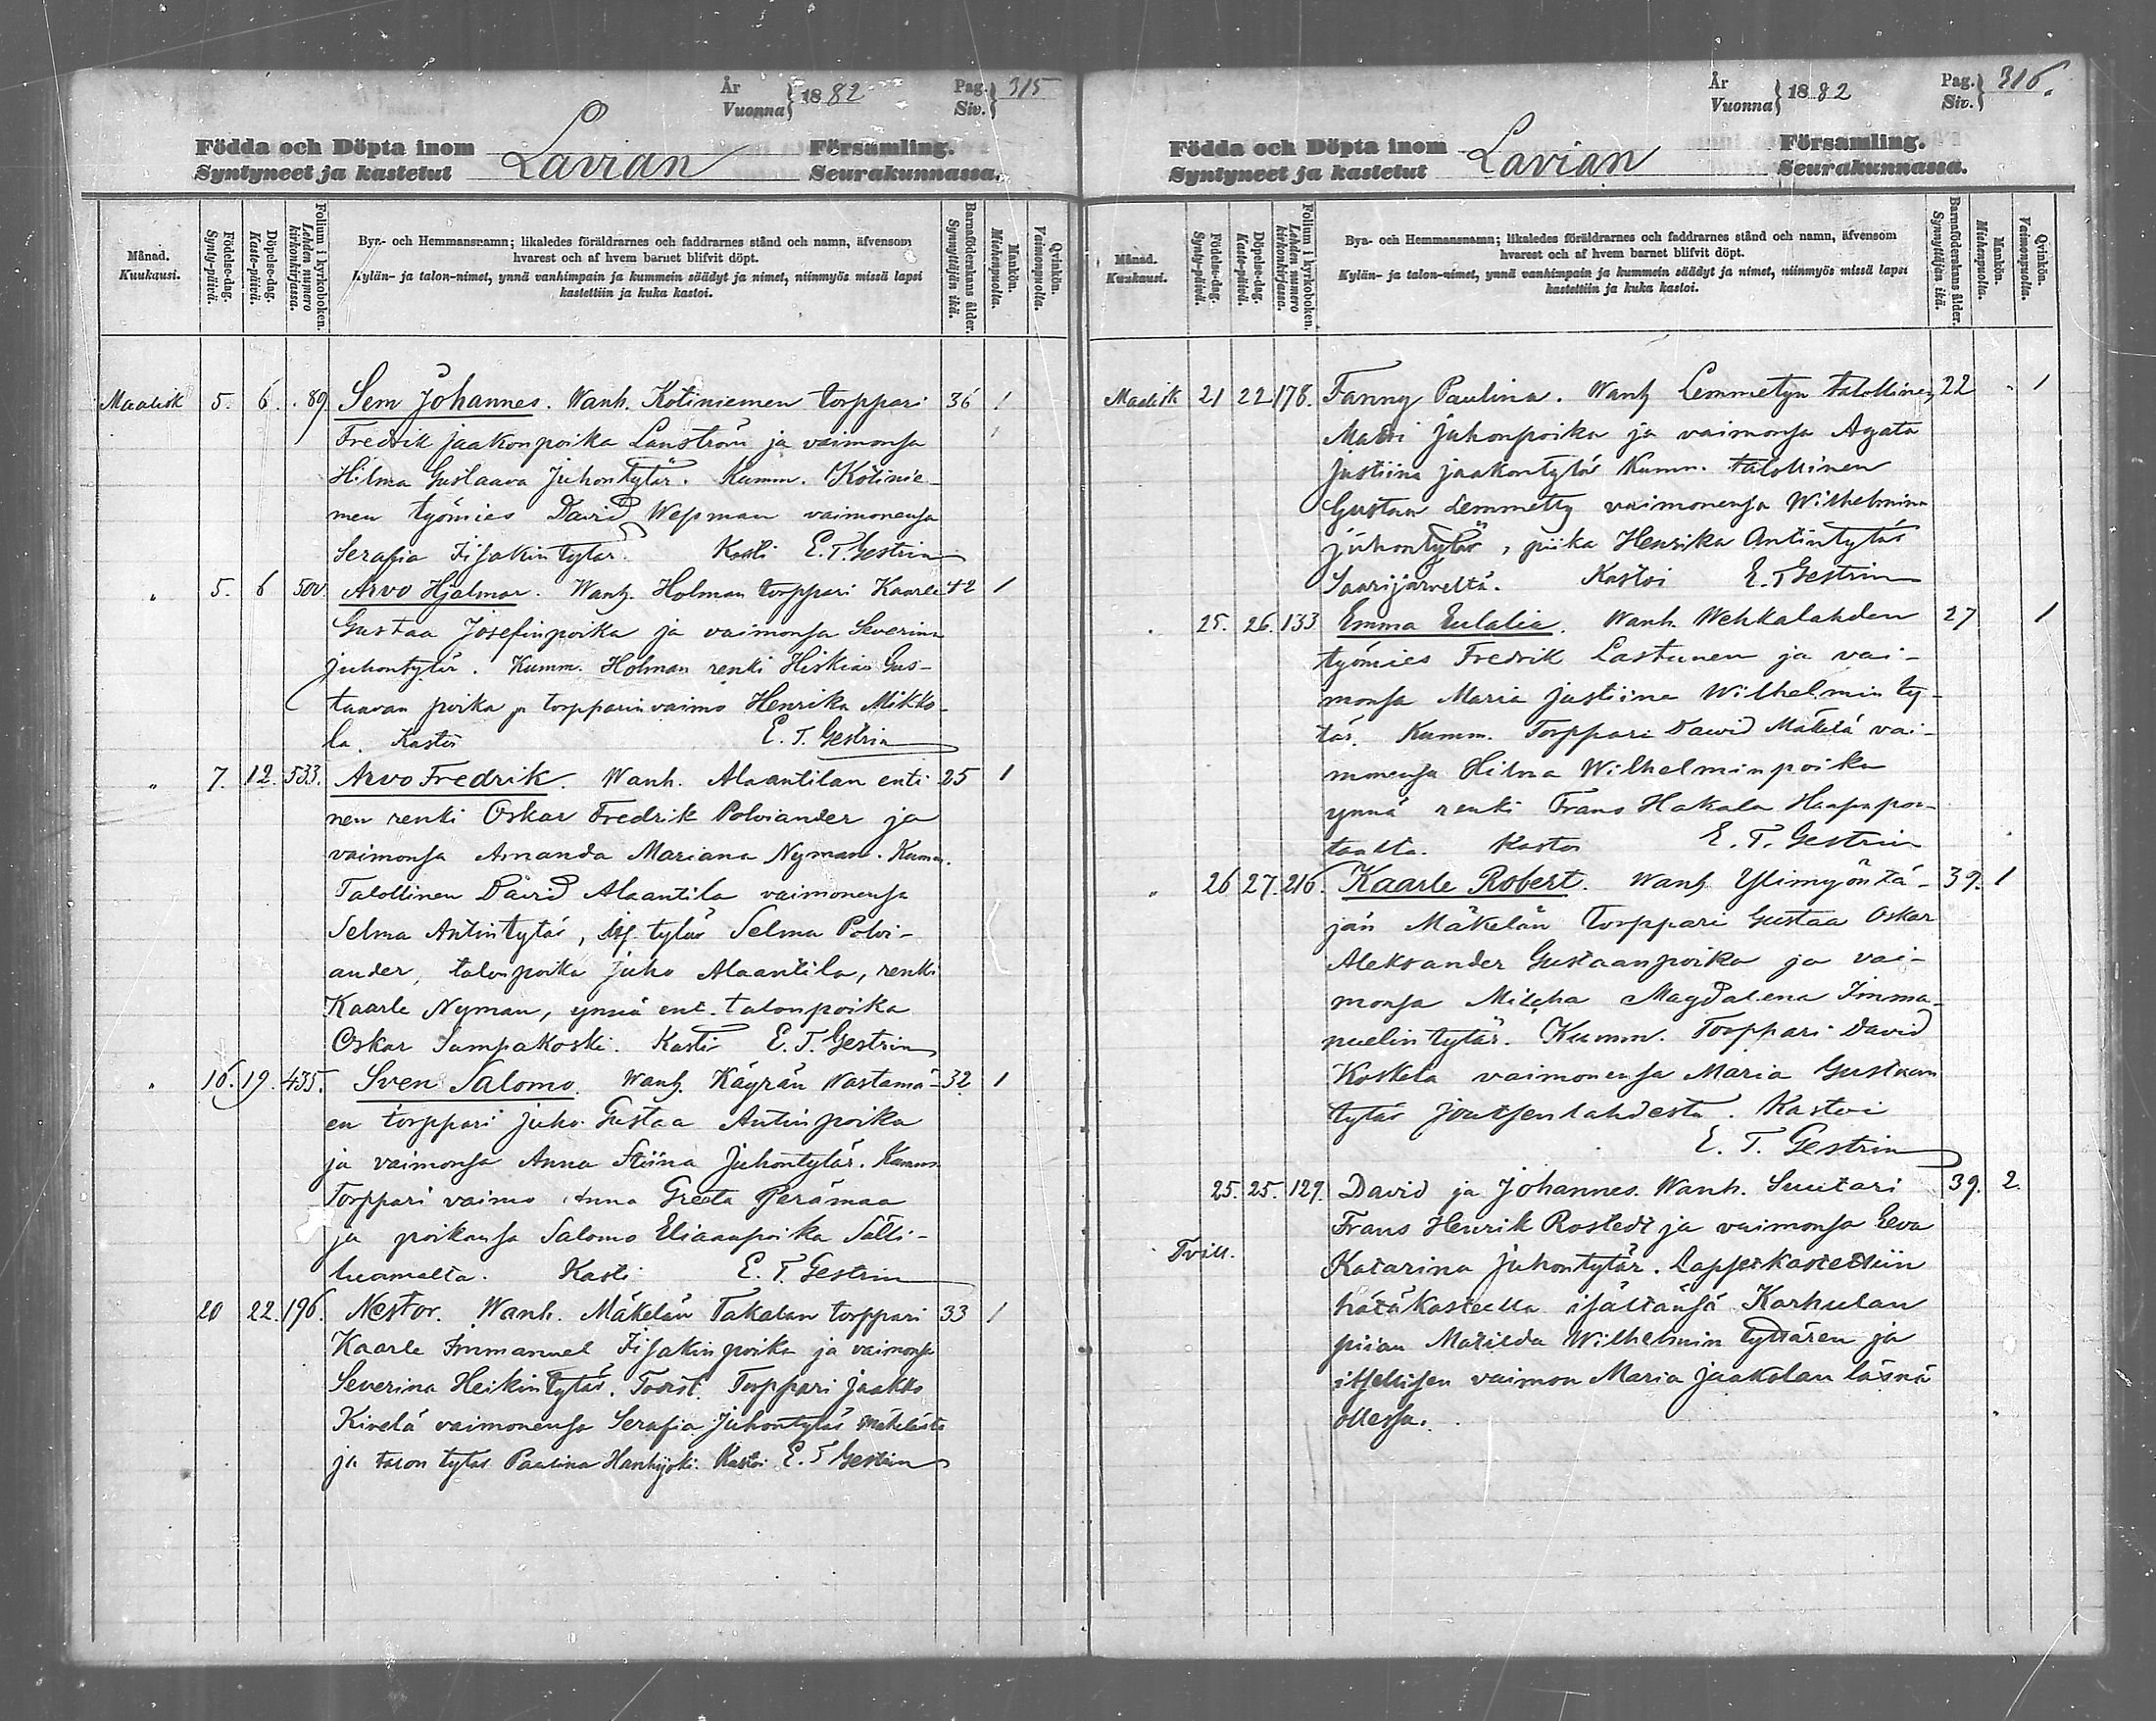 År
Vuonna } 1882
Pag.
Siv. } 315
Födda och Döpta inom Lavian Församling.
Syntyneet ja kastetut Seurakunnassa.
Månad.
Kuukausi.
Födelse-dag.
Synty-päivä.
Döpelse-dag.
Kaste-päivä.
Folium i kyrkoboken.
Lehden numero
kirkonkirjassa.
Byr- och Hemmansnamn; likaledes föräldrarnes och faddrarnes stånd och namn, äfvensom
hvarest och af hvem barnet blifvit döpt.
Kylän- ja talon-nimet, ynnä vanhimpain ja kummein säädyt ja nimet, niinmyös missä lapsi
kastettiin ja kuka kastoi.
Barnaföderskans ålder.
Synnyttäjän ikä.
Mankön.
Miehenpuolta.
Qvinkön.
Vaimonpuolta.
Maalisk 5. 6. 89 Sem Johannes. Wanh. Kotiniemen torppari 36 1
Fredrik Jaakonpoika Lanström ja vaimonsa
Hilma Gustaava Juhontytär. Kumm. Kotinie-
men työmies David Wepman vaimonensa
Serafia Iisakin tytär. Kasti E. T. Gestrin
" 5. 6 500. Arvo Hjalmar. Wanh. Holman torppari Kaarle 42 1
Gustaa Josefinpoika ja vaimonsa Severina
Juhontytär. Kumm. Holman renki Hiskias Gus-
taavan poika ja torpparinvaimo Henrika Mikko-
la. Kastoi E. T. Gestrin
" 7. 12. 533. Arvo Fredrik. Wanh. Alaantilan enti- 25 1
nen renki Oskar Fredrik Polviander ja
vaimonsa Amanda Mariana Nyman. Kumm.
Talollinen David Alaantila vaimonensa
Selma Antintytär, tytär Selma Polvi-
ander, talonpoika Juho Alaantila, renki
Kaarle Nyman, ynnä ent. talonpoika
Oskar Sampakoski. Kasti E. T. Gestrin
" 16. 19. 435. Sven Salomo. Wanh. Käyrän Nastamä- 32 1
en torppari Juho Gustaa Antinpoika
ja vaimonsa Anna Stiina Juhontytär. Kumm.
Torppari vaimo Anna Greeta Perämaa
ja poikansa Salomo Eliaanpoika Sälli-
luomalta. Kasti E. T. Gestrin
20 22. 196. Nestor. Wanh. Mäkelän Takalan torppari 33 1
Kaarle Immanuel Iisakinpoika ja vaimonsa
Severina Heikintytär. Todist. Torppari Jaakko
Kivelä vaimonensa Serafia Juhontytär Mäkelästä
ja talon tytär Paulina Hanhijoki. Kastoi E. T. Gestrin
År
Vuonna } 1882
Pag.
Siv. } 316.
Födda och Döpta inom Lavian Församling.
Syntyneet ja kastetut Seurakunnassa.
Månad.
Kuukausi.
Födelse-dag.
Synty-päivä.
Döpelse-dag.
Kaste-päivä.
Folium i kyrkoboken.
Lehden numero
kirkonkirjassa.
Bya- och Hemmansnamn; likaledes föräldrarnes och faddrarnes stånd och namn, äfvensom
hvarest och af hvem barnet blifvit döpt.
Kylän- ja talon-nimet, ynnä vanhimpain ja kummein säädyt ja nimet, niinmyös missä lapsi
kastettiin ja kuka kastoi.
Barnaföderskans ålder.
Synnyttäjän ikä.
Mankön.
Miehenpuolta.
Qvinkön.
Vaimonpuolta.
Maalisk 21 22 178. Fanny Paulina. Wanh Lemmetyn talollinen 22 " 1
Matti Juhonpoika ja vaimonsa Agata
Justiina Jaakontytär Kumm. talollinen
Gustaa Lemmetty vaimonensa Wilhelmina
Juhontytär, piika Henrika Antintytär
Saarijärveltä. Kastoi E. T Gestrin
" 25. 26. 133 Emma Eulalia. Wanh. Wehkalahden 27 1
työmies Fredrik Lastunen ja vai-
monsa Maria Justiina Wilhelmin ty-
tär. Kumm. Torppari David Mäkelä vai-
monensa Hilma Wilhelminpoika
ynnä renki Frans Hakala Haapapor-
taalta. Kastoi E. T. Gestrin
" 26 27. 216. Kaarle Robert. Wanh Ylimyöntä- 39. 1
jän Mäkelän torppari Gustaa Oskar
Aleksander Gustaanpoika ja vai-
monsa Milcha Magdalena Imma-
nuelintytär. Kumm. Torppari David
Koskela vaimonensa Maria Gustaan
tytär Joutsenlahdesta. Kastoi
E. T. Gestrin
25. 25. 129. David ja Johannes. Wanh. Suutari 39. 2.
Frans Henrik Rostedt ja vaimonsa Eeva
Tvill. Katarina Juhontytär. Lapset kastettiin
hätäkasteella isältänsä Karhulan
piian Matilda Wilhelmin tyttären ja
itsellisen vaimon Maria Jaakolan läsnä
ollessa.